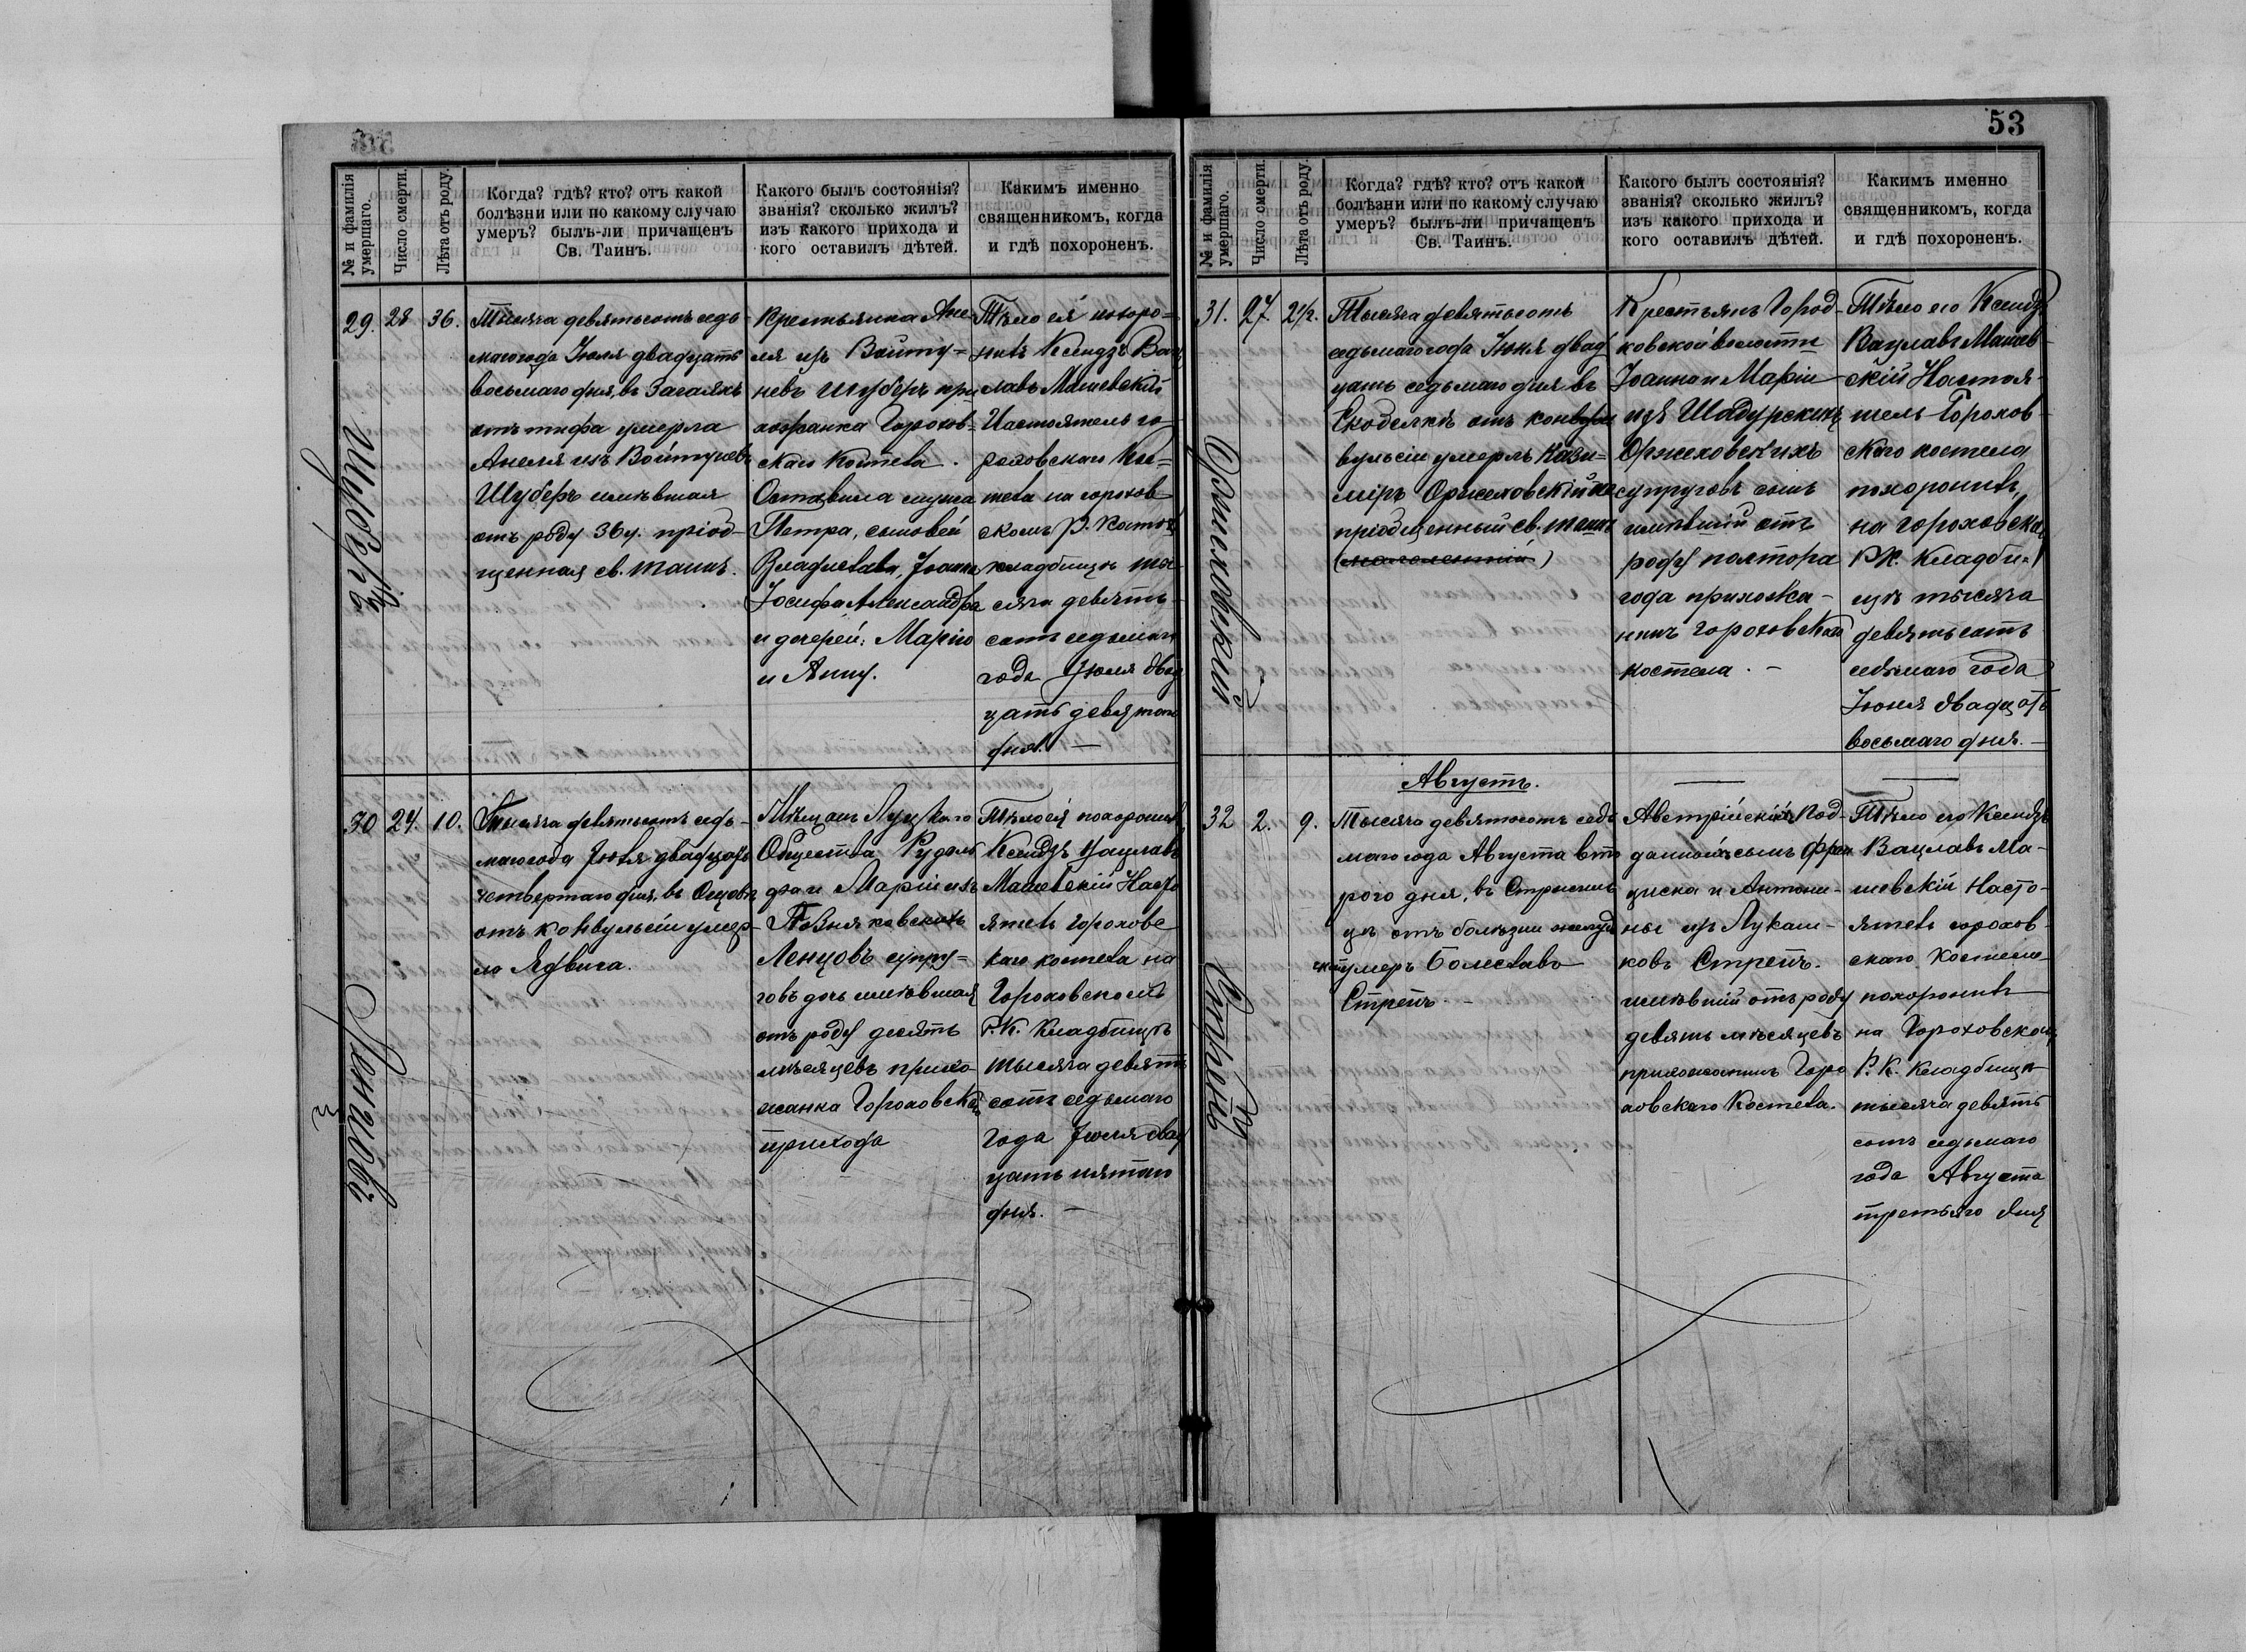 53
№ и фамилія умершаго.
Число смерти.
Лѣта отъ роду.
Когда? гдѣ? кто? отъ какой
болѣзни или по какому случаю
умеръ? былъ-ли причащенъ
Св. Таинъ.
Какого былъ состоянія?
званія? сколько жилъ?
изъ какого прихода и
кого оставилъ дѣтей.
Какимъ именно
священникомъ, когда
и гдѣ похороненъ.
29.
Шуберъ
28
36.
Тысяча девятьсотъ седь-
маго года Іюля двадцать
восьмаго дня, въ Загаяхъ
отъ тифа умерла
Анеля изъ Войтунев
Шуберъ имѣвшая
отъ роду 36 г. пріоб-
щенная св. таинъ.
Крестьянка Ане
ля изъ Войту=
невъ Шуберъ при
хожанка Горохов-
скаго Костела.
Оставила мужа
Петра, сыновей
Владислава, Іоанна
Іосифа Александра
и дочерей: Марію
и Анну.
Тѣло ея похоро=
нилъ Ксендзъ Вац
лавъ Машевскій
Настоятель го-
роховскаго Кос=
тела на горохов
скомъ р. катол
кладбищѣ ты-
сяча девять-
сотъ седьмаго
года Іюля двад
цать девятаго
дня. —
30
Ленцовъ
24.
10.
Тысяча девятьсотъ седь-
маго года Іюля двадцать
четвертаго дня, въ
отъ конвульсіи умер-
ла Ядвига.
Мѣщанъ Луцкаго
Общества Рудоль
фа и Маріи изъ
Ленцовъ супру=
говъ дочь имѣвшая
отъ роду десять
мѣсяцевъ прихо-
жанка Гороховскаго
прихода
Тѣло ея похоронилъ
Ксендзъ Вацлавъ
Машевскій Насто
ятель горохов
скаго костела на
Гороховскомъ
Р. К. Кладбищѣ
тысяча девять
сотъ седьмаго
года Іюля двад
цать пятаго
дня. —
№ и фамилія умершаго.
Число смерти.
Лѣта отъ роду.
Когда? гдѣ? кто? отъ какой
болѣзни или по какому случаю
умеръ? былъ-ли причащенъ
Св. Таинъ.
Какого былъ состоянія?
званія? сколько жилъ?
изъ какого прихода и
кого оставилъ дѣтей.
Какимъ именно
священникомъ, когда
и гдѣ похороненъ.
31.
Оржеховскій
27.
Тысяча девятьсотъ
седьмаго года Іюня двад
цать седьмаго дня въ
Скобелкѣ отъ конвуль
вульсіи умеръ Кази=
міръ Оржеховскій не
пріобщенный св. таинъ
(малолетній)
Крестьянъ Город-
ковской волости
Іоанна и Маріи
изъ Шадурскихъ
Оржеховскихъ
супруговъ сынъ
имѣвшій отъ
роду полтора
года прихожа-
нинъ гороховскаго
костела. —
Тѣло его Ксендзъ
Вацлавъ Машев
скій Настоя-
тель Горохов-
скаго костела
похоронилъ
на гороховскомъ
Р.К. Кладби=
щѣ тысяча
девятьсотъ
седьмаго года
Іюня двадцать
восьмаго дня. —
Августъ.
32
Стрепъ
2.
9.
Тысяча девятьсотъ седь
маго года Августа вто
рого дня, въ
цѣ отъ болѣзни желуд
ка умеръ Болеславъ
Стрепъ. —
Австрійскій под-
данный, сынъ Фран
циска и Антони-
ны изъ Лукаш-
ковъ Стрепъ.
имѣвшій отъ роду
девять мѣсяцевъ
прихожанинъ Горо
ховскаго Костела.
Тѣло его Ксендзъ
Вацлавъ Ма-
шевскій Насто-
ятель горохов-
скаго Костела
похоронилъ
на Гороховскомъ
Р. К. Кладбищѣ
тысяча девять
сотъ седьмаго
года Августа
третьяго дня